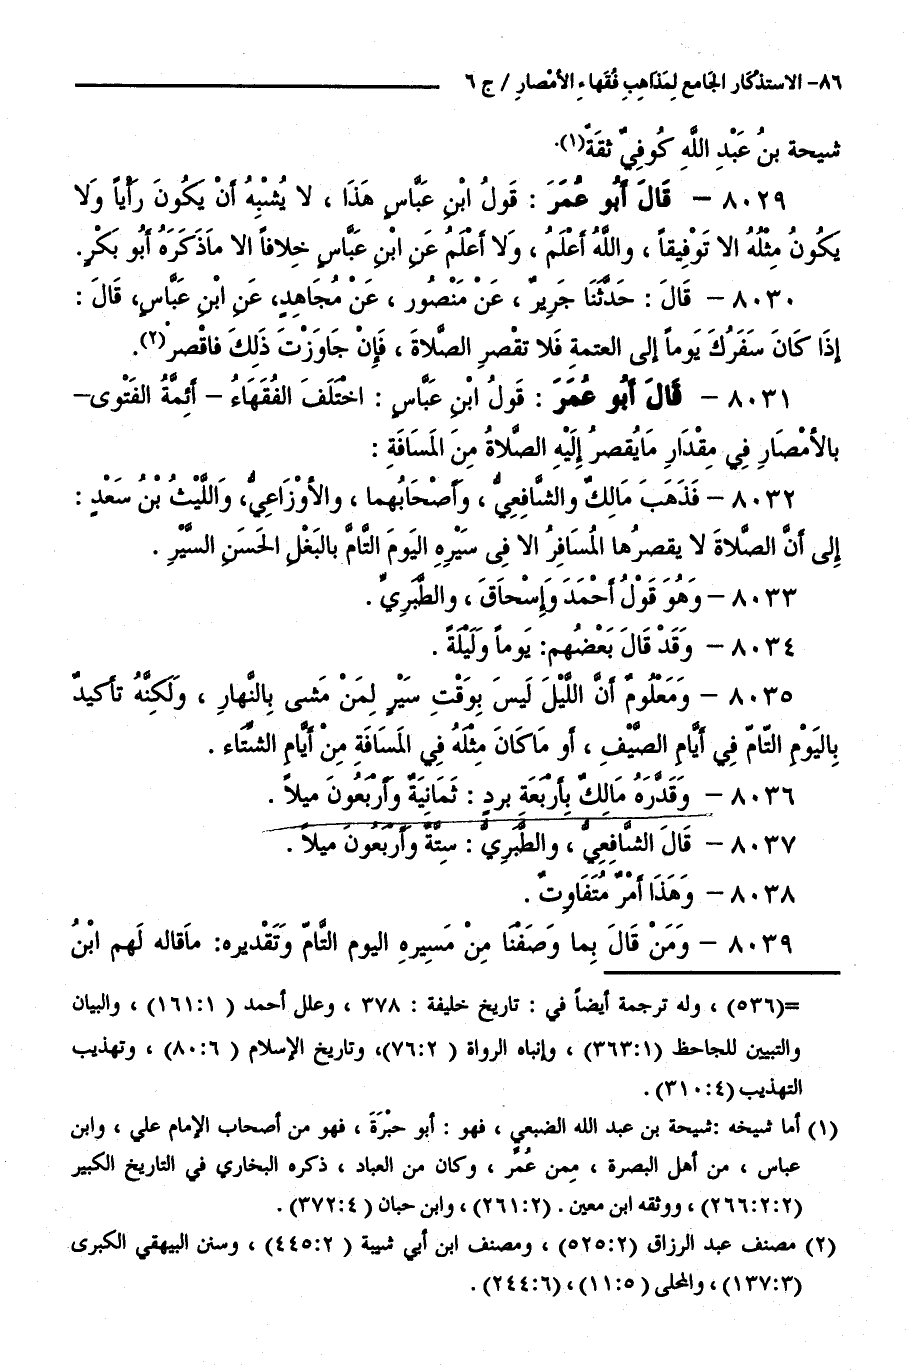 ٨٦- الاستذكار الجامع لِمَذاهِبِ فُقَهاءِ الأمْصارِ / ج ٦
شيحة بنُ عَبْدِ اللَّهِ كُوفِيٌّ ثقَةٌ(١).
٨٠٢٩ – قَالَ أَبُو عُمَرَ : قَولُ ابْنِ عَبَّاسٍ هَذَا ، لا يُشْبِهُ أَنْ يَكُونَ رَأْياً وَلا
يكُونُ مِثْلُهُ الا تَوْفِيقاً ، واللَّهُ أعْلَمُ ، وَلا أعْلَمُ عَنِ ابْنِ عَبَّاسٍ خلافاً الا ماَذَكَرَهُ أبُو بَكْرٍ.
٨٠٣٠ – قَالَ : حَدَّثَنَا جَرِيرٌ ، عَنْ مَنْصُور ، عَنْ مُجَاهِدٍ، عَنِ ابْنِ عَبَّاسٍ، قَالَ :
إذَا كَانَ سَفَرُكَ يَوماً إلى العتمة فَلا تقْصرِ الصَّلاةَ ، فَإِنْ جَاوَزْتَ ذَلِكَ فاقْصرْ(٢).
٨٠٣١ – قَالَ أَبُو عُمَرَ : قَولُ ابْنِ عَبَّاسٍ : اخْتَلَفَ الفُقَهَاءُ – أئِمَّةُ الفَتْوى–
بالأمْصَارِ فِي مِقْدَارِ مَايُقصرُ إلَيْهِ الصَّلاةُ مِنَ الَمسَافَةِ :
٨٠٣٢ – فَذَهَبَ مَالِكٌ والشَّافِعِيُّ ، وَأَصْحَابُهما ، والأوْزَاعِيُّ، وَاللَّيْثُ بْنُ سَعْدٍ :
إلى أنَّ الصَّلاةَ لا يقصرُها المُسَافِرُ الا فى سَيْرِهِ اليَومَ التَّامَّ بالبَغْلِ الحَسَنِ السيَّرْ .
٨٠٣٣ – وَهُوَ قَوْلُ أَحْمَدَ وَإِسْحاَقَ ، والطَّبَرِيٌّ .
٨٠٣٤ – وَقَدْ قَالَ بَعْضُهم: يَوماً وَلَيْلَةً .
٨٠٣٥ – وَمَعْلُومٌ أَنَّ اللَّيْلَ لَيسَ بِوَقْتِ سَيْرٍ لِمَنْ مَشى بِالنَّهارِ ، وَلَكِنَّهُ تأكيدٌ
بِاليَوْمِ التّامِّ فِي أَيَّامِ الصَّيْفِ ، أو مَاكَانَ مِثْلَهُ فِي المَسَافَةِ مِنْ أيَّامِ الشتَّاء .
٨٠٣٦ – وَقَدَّرَهُ مَالِكٌ بِأَرْبَعَةِ بردٍ : ثَمَانِيَةٌ وَأَرْبَعُونَ ميلاً .
٨٠٣٧ – قَالَ الشَّافِعِيُّ ، والطَّبَرِيُّ : ستَّةٌ وَأَرْبَعُونَ ميلاً .
٨٠٣٨ – وَهَذَا أَمْرٌ مُتَفَاوِتٌ .
٨٠٣٩ – وَمَنْ قَالَ بِما وَصَفْنَا مِنْ مَسِيرِهِ اليوم التَّامِّ وَتَقْديره: ماَقاله لَهم ابْنُ
=(٥٣٦) ، وله ترجمة أيضاً في : تاريخ خليفة : ٣٧٨ ، وعلل أحمد ( ١٦١:١) ، والبيان
والتبيين للجاحظ (٣٦٣:١) ، وإنباه الرواة ( ٧٦:٢)، وتاريخ الإسلام ( ٨٠:٦) ، وتهذيب
التهذيب (٣١٠:٤) .
(١) أما شيخه :شيحة بن عبد الله الضبعي ، فهو : أبو حبْرَة ، فهو من أصحاب الإمام علي ، وابن
عباس ، من أهل البصرة ، ممن عُمِّر ، وكان من العباد ، ذكره البخاري في التاريخ الكبير
(٢٦٦:٢:٢) ، ووثقه ابن معين . (٢٦١:٢) ، وابن حبان ( ٣٧٢:٤) .
(٢) مصنف عبد الرزاق (٥٢٥:٢) ، ومصنف ابن أبي شيبة ( ٤٤٥:٢) ، وسنن البيهقي الكبرى
(١٣٧:٣) ، والمحلى ( ١١:٥) ، (٢٤٤:٦) .